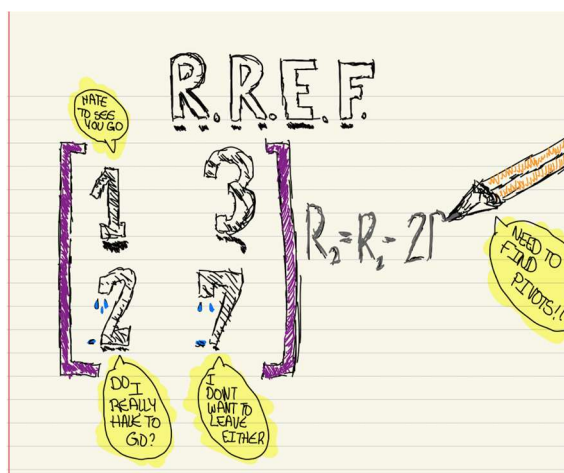 R.R.E.F.
HATE
TO SEE
YOU GO
1 3
R₂=R₂-2r
2 7
NEED TO
FIND
PIVOTS!!
DO I
REALLY
HAVE TO
GO?
I
DONT
WANT TO
LEAVE
EITHER